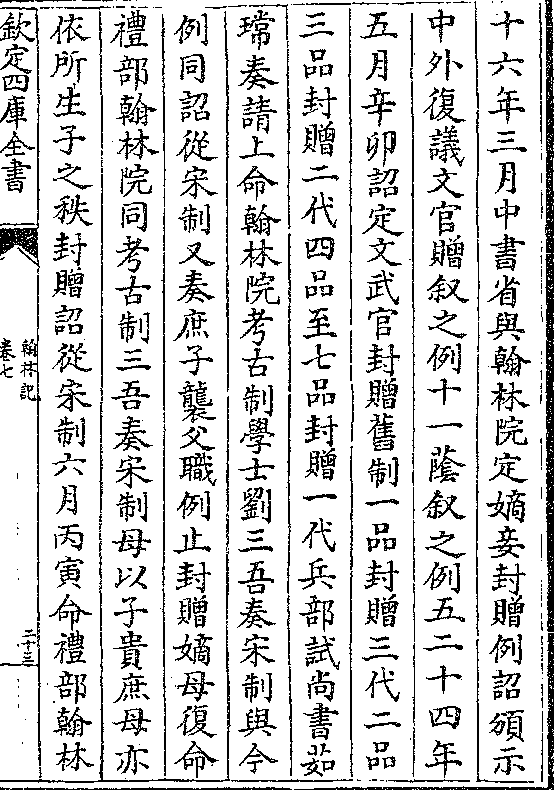 十六年三月中書省與翰林院定嫡妾封贈例詔頒示
中外復議文官贈叙之例十一䕃叙之例五二十四年
五月辛卯詔定文武官封贈舊制一品封贈三代二品
三品封贈二代四品至七品封贈一代兵部試尚書茹
瑺奏請上命翰林院考古制學士劉三吾奏宋制與今
例同詔從宋制又奏庶子襲父職例止封贈嫡母復命
禮部翰林院同考古制三吾奏宋制母以子貴庶母亦
依所生子之秩封贈詔從宋制六月丙寅命禮部翰林
欽定四庫全書
翰林記
卷七
二十三